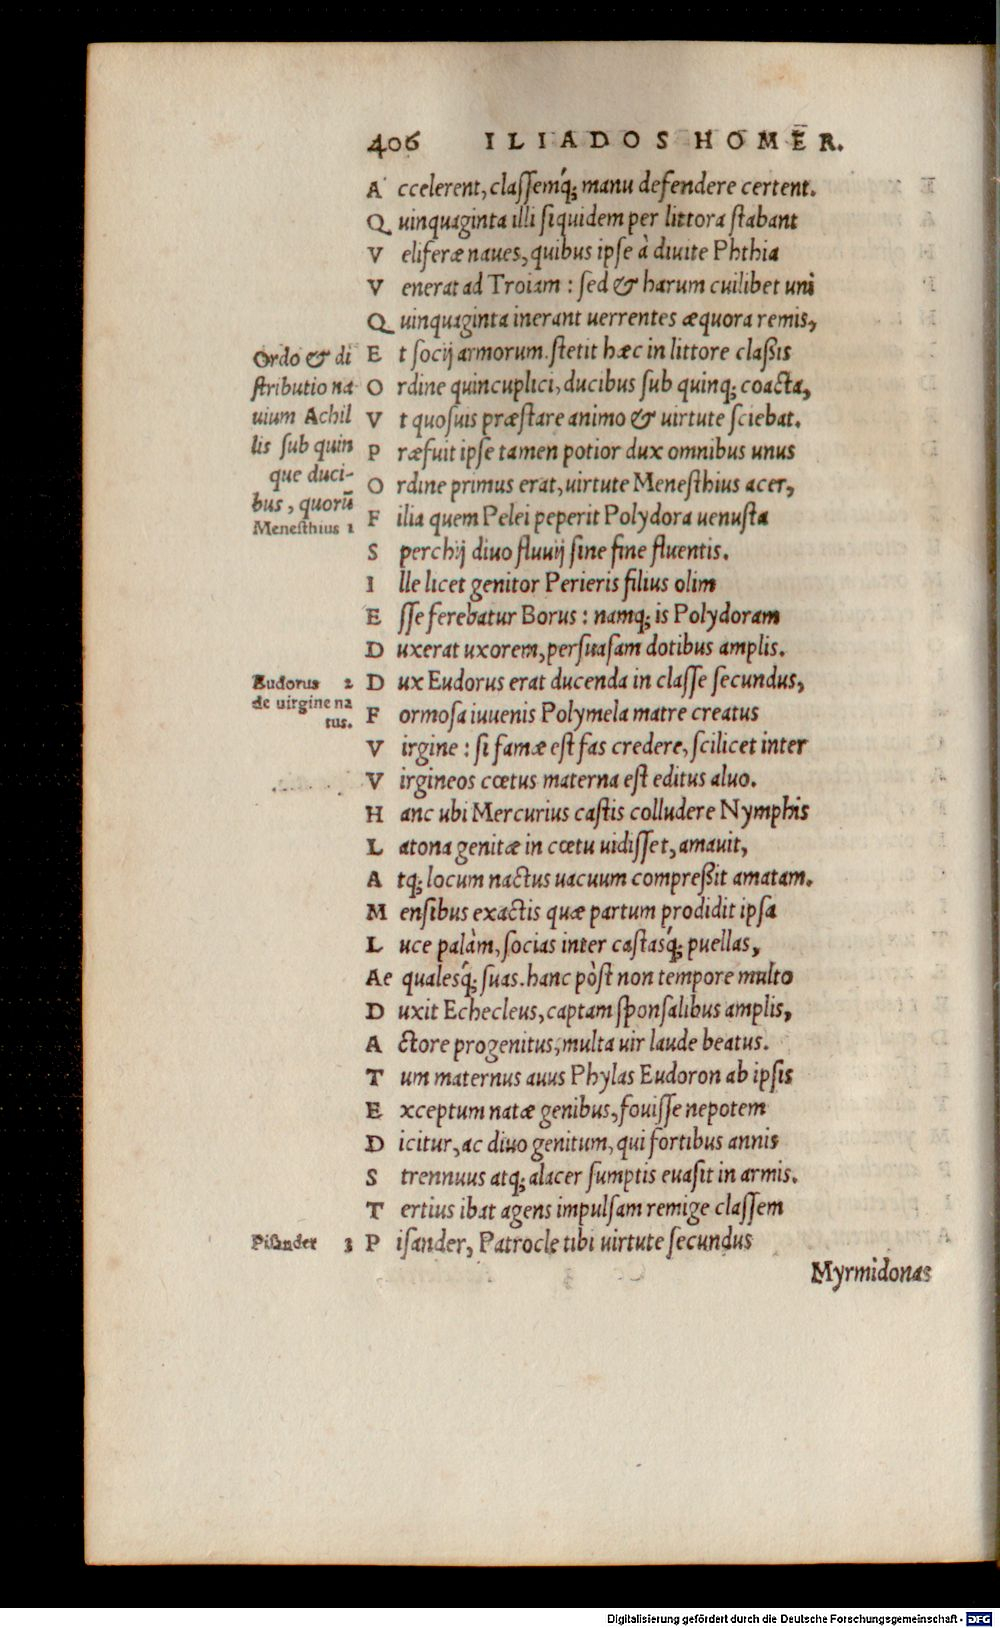 406 ILIADOS HOMĒR.
A ccelerent, classemq́; manu defendere certent.
Q uinquaginta illi siquidem per littora stabant
V eliferæ naues, quibus ipse à diuite Phthia
V enerat ad Troiam : sed & harum cuilibet uni
Q uinquaginta inerant uerrentes æquora remis,
E t socij armorum. stetit hæc in littore claßis
O rdine quincuplici, ducibus sub quinq; coacta,
V t quosuis præstare animo & uirtute sciebat.
P ræfuit ipse tamen potior dux omnibus unus
O rdine primus erat, uirtute Menesthius acer,
F ilia quem Pelei peperit Polydora uenusta
S perchij diuo fluuij sine fine fluentis.
I lle licet genitor Perieris filius olim
E sse ferebatur Borus : namq; is Polydoram
D uxerat uxorem, persuasam dotibus amplis.
D ux Eudorus erat ducenda in classe secundus,
F ormosa iuuenis Polymela matre creatus
V irgine : si famæ est fas credere, scilicet inter
V irgineos cœtus materna est editus aluo.
H anc ubi Mercurius castis colludere Nymphis
L atona genitæ in cœtu uidisset, amauit,
A tq; locum nactus uacuum compreßit amatam.
M ensibus exactis quæ partum prodidit ipsa
L uce palàm, socias inter castasq́; puellas,
Ae qualesq́; suas. hanc pòst non tempore multo
D uxit Echecleus, captam sponsalibus amplis,
A ctore progenitus, multa uir laude beatus.
T um maternus auus Phylas Eudoron ab ipsis
E xceptum natæ genibus, fouisse nepotem
D icitur, ac diuo genitum, qui fortibus annis
S trennuus atq; alacer sumptis euasit in armis.
T ertius ibat agens impulsam remige classem
P isander, Patrocle tibi uirtute secundus
Myrmidonas
Ordo & di
stributio na
uium Achil
lis sub quin
que duci-
bus, quorū
Menesthius 1
Eudorus 2
de uirgine na
tus.
Pisander 3
Digitalisierung gefördert durch die Deutsche Forschungsgemeinschaft - DFG